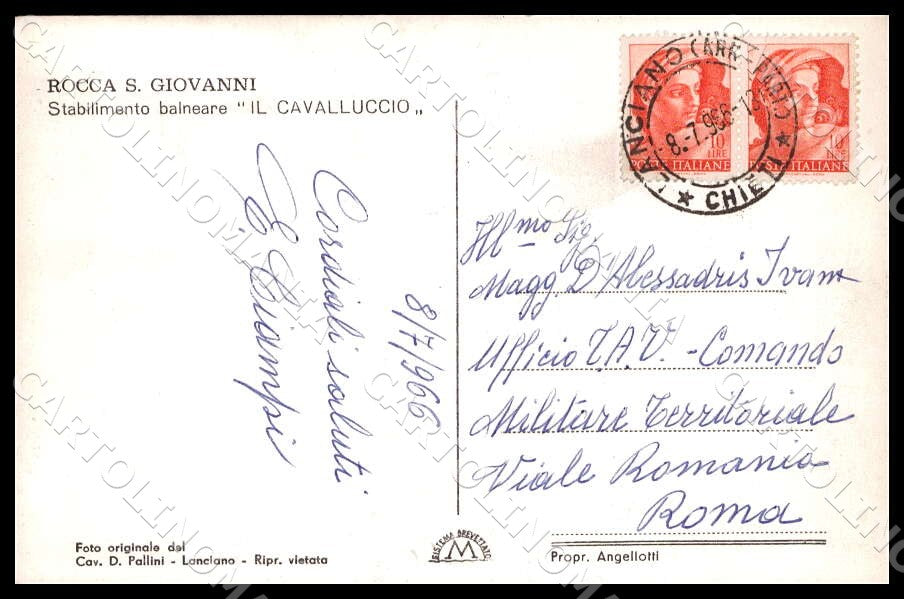 ROCCA S. GIOVANNI
Stabilimento balneare "IL CAVALLUCCIO„
Cordiali saluti
E. Ciampi
8/7/966
LANCIANO
8.-7.966-
CHIETI
10
LIRE
POSTE ITALIANE
10
LIRE
POSTE ITALIANE
Ill.mo Sig.
Magg. D'Alessadris Ivan
Ufficio T.A.V. - Comando
Militare Territoriale
Viale Romania
Roma
Foto originale del
Cav. D. Pallini - Lanciano - Ripr. vietata
SISTEMA BREVETTATO
M
Propr. Angellotti
CARTOLINOMANIA